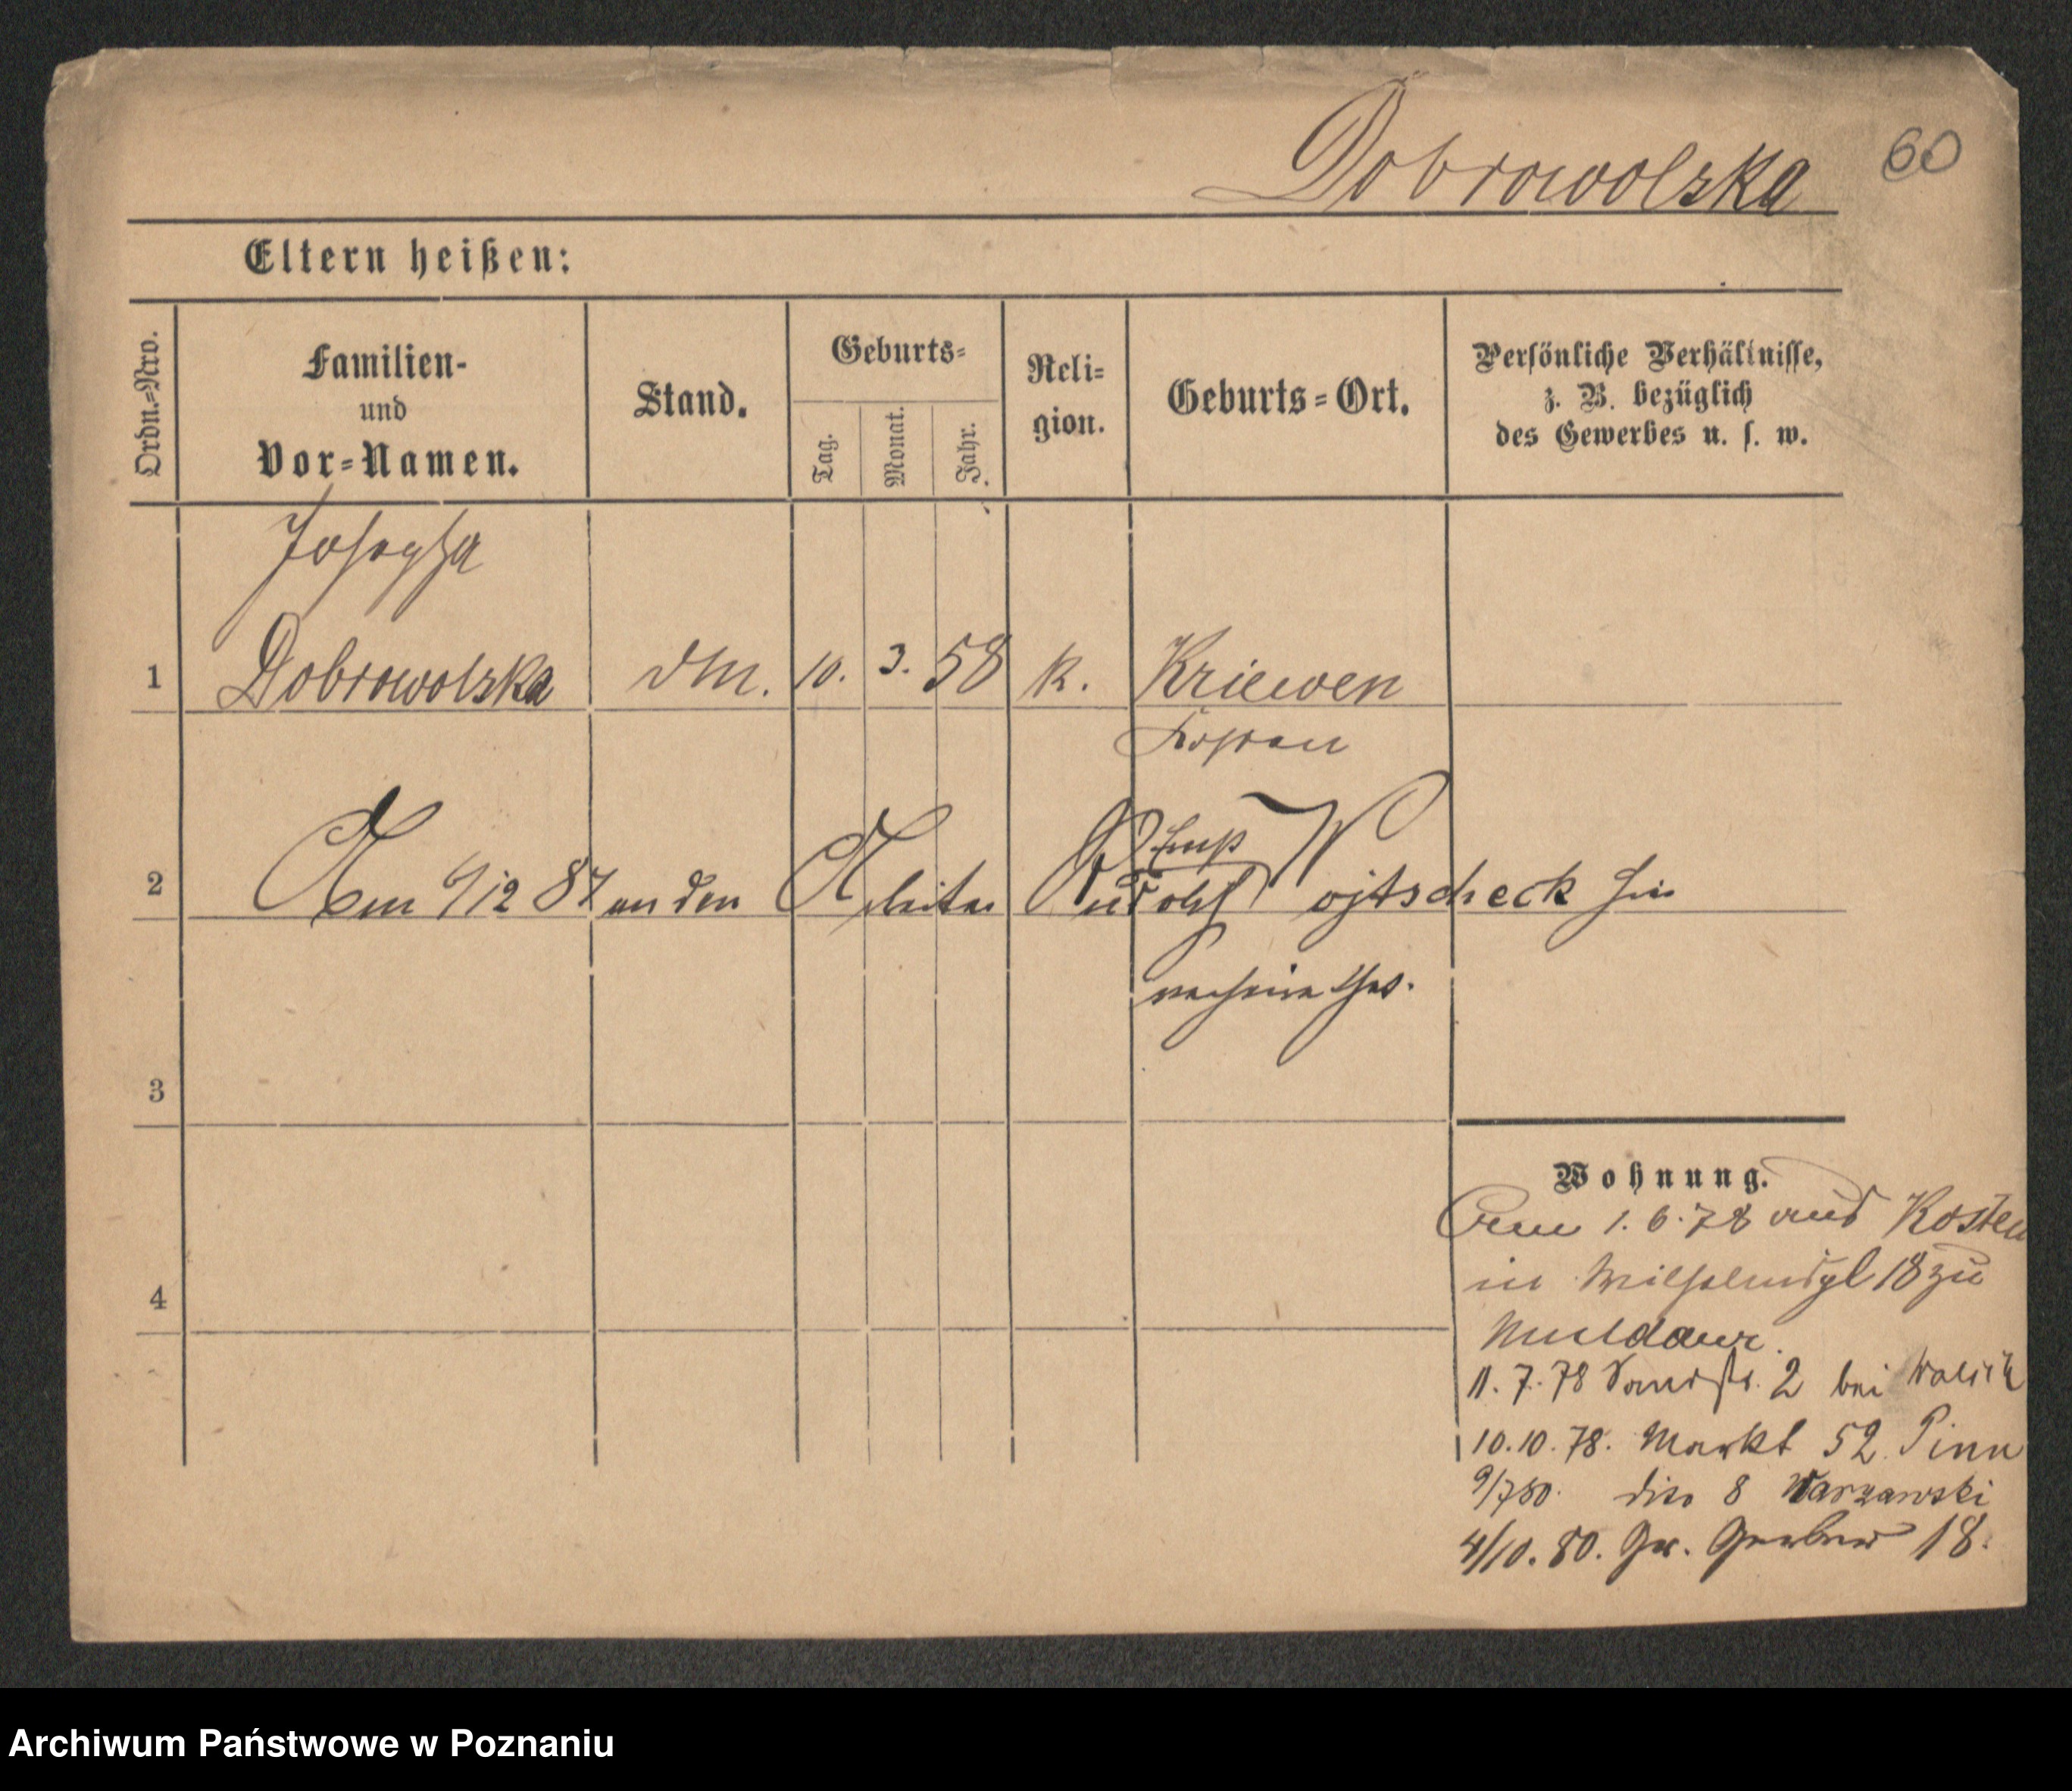 Dobrowolska 60
Eltern heißen:
Ordn.-Nro.
Familien-
und
Vor-Namen.
Stand.
Geburts-
Tag.
Monat.
Jahr.
Reli-
gion.
Geburts-Ort.
Persönliche Verhältnisse,
z. B. bezüglich
des Gewerbes u. s. w.
Josepha
1 Dobrowolska DM. 10. 3. 58 k. Kriewen
Kosten
2 Am 6/12 87 an den Arbeiter Rudolf Wojtscheck hier
verheirathet.
3
4
Wohnung.
1. 6. 78 aus Kosten
in Wilhelmspl 18 zu
Muldauer.
11. 7. 78 2 bei
10. 10. 78. Markt 52 Pinn
9/7 80. dito 8 Warzawski
4/10. 80. Gr. Gerber 18.
Archiwum Państwowe w Poznaniu